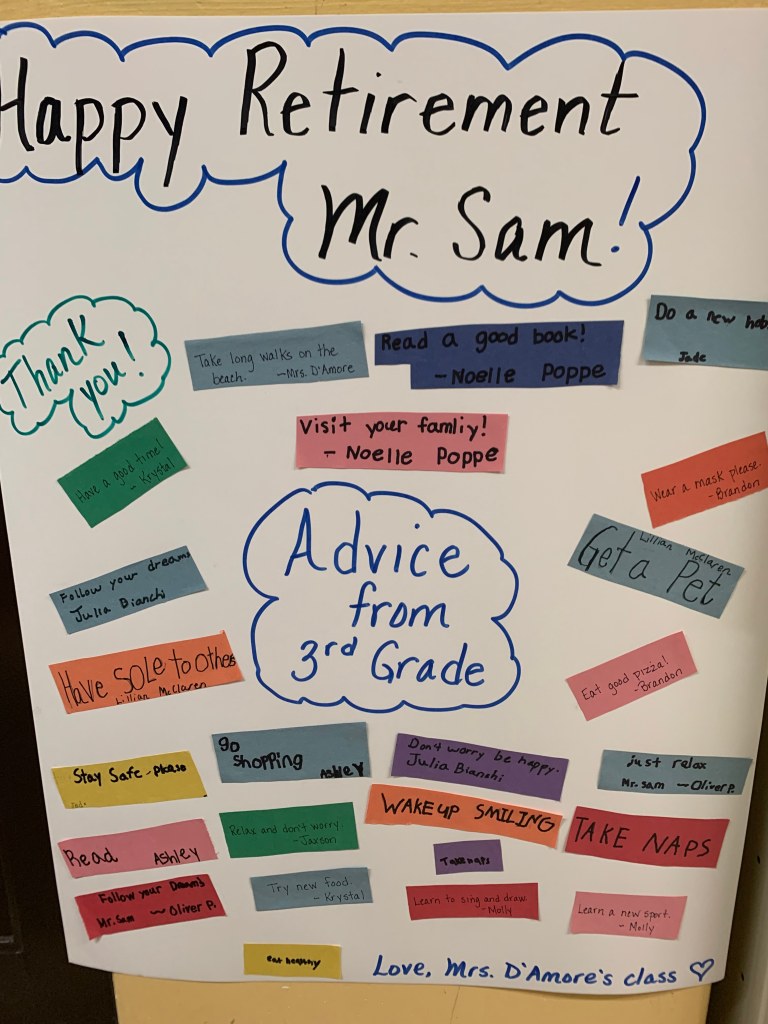 Happy Retirement
Mr. Sam!
Thank
you!
Take long walks on the
beach. -Mrs. D'Amore
Read a good book!
- Noelle Poppe
Do a new hob
Jade
Visit your famliy!
- Noelle Poppe
Have a good time!
- Krystal
Wear a mask please.
- Brandon
Advice
from
3rd Grade
Lillian McClaren
Get a Pet
Follow your dreams
Julia Bianchi
Have SOLE to Othes
Lillian McClaren
Eat good pizza!
- Brandon
Stay Safe - Please
Jade
go
shopping
Ashley
Don't worry be happy.
Julia Bianchi
just relax
Mr. Sam - Oliver P.
Read Ashley
Relax and don't worry.
- Jaxson
WAKE UP SMILING
TAKE NAPS
Take naps
Follow your Dreams
Mr. Sam - Oliver P.
Try new food.
- Krystal
Learn to sing and draw.
- Molly
Learn a new sport.
- Molly
eat healthy
Love, Mrs. D'Amore's class ♡